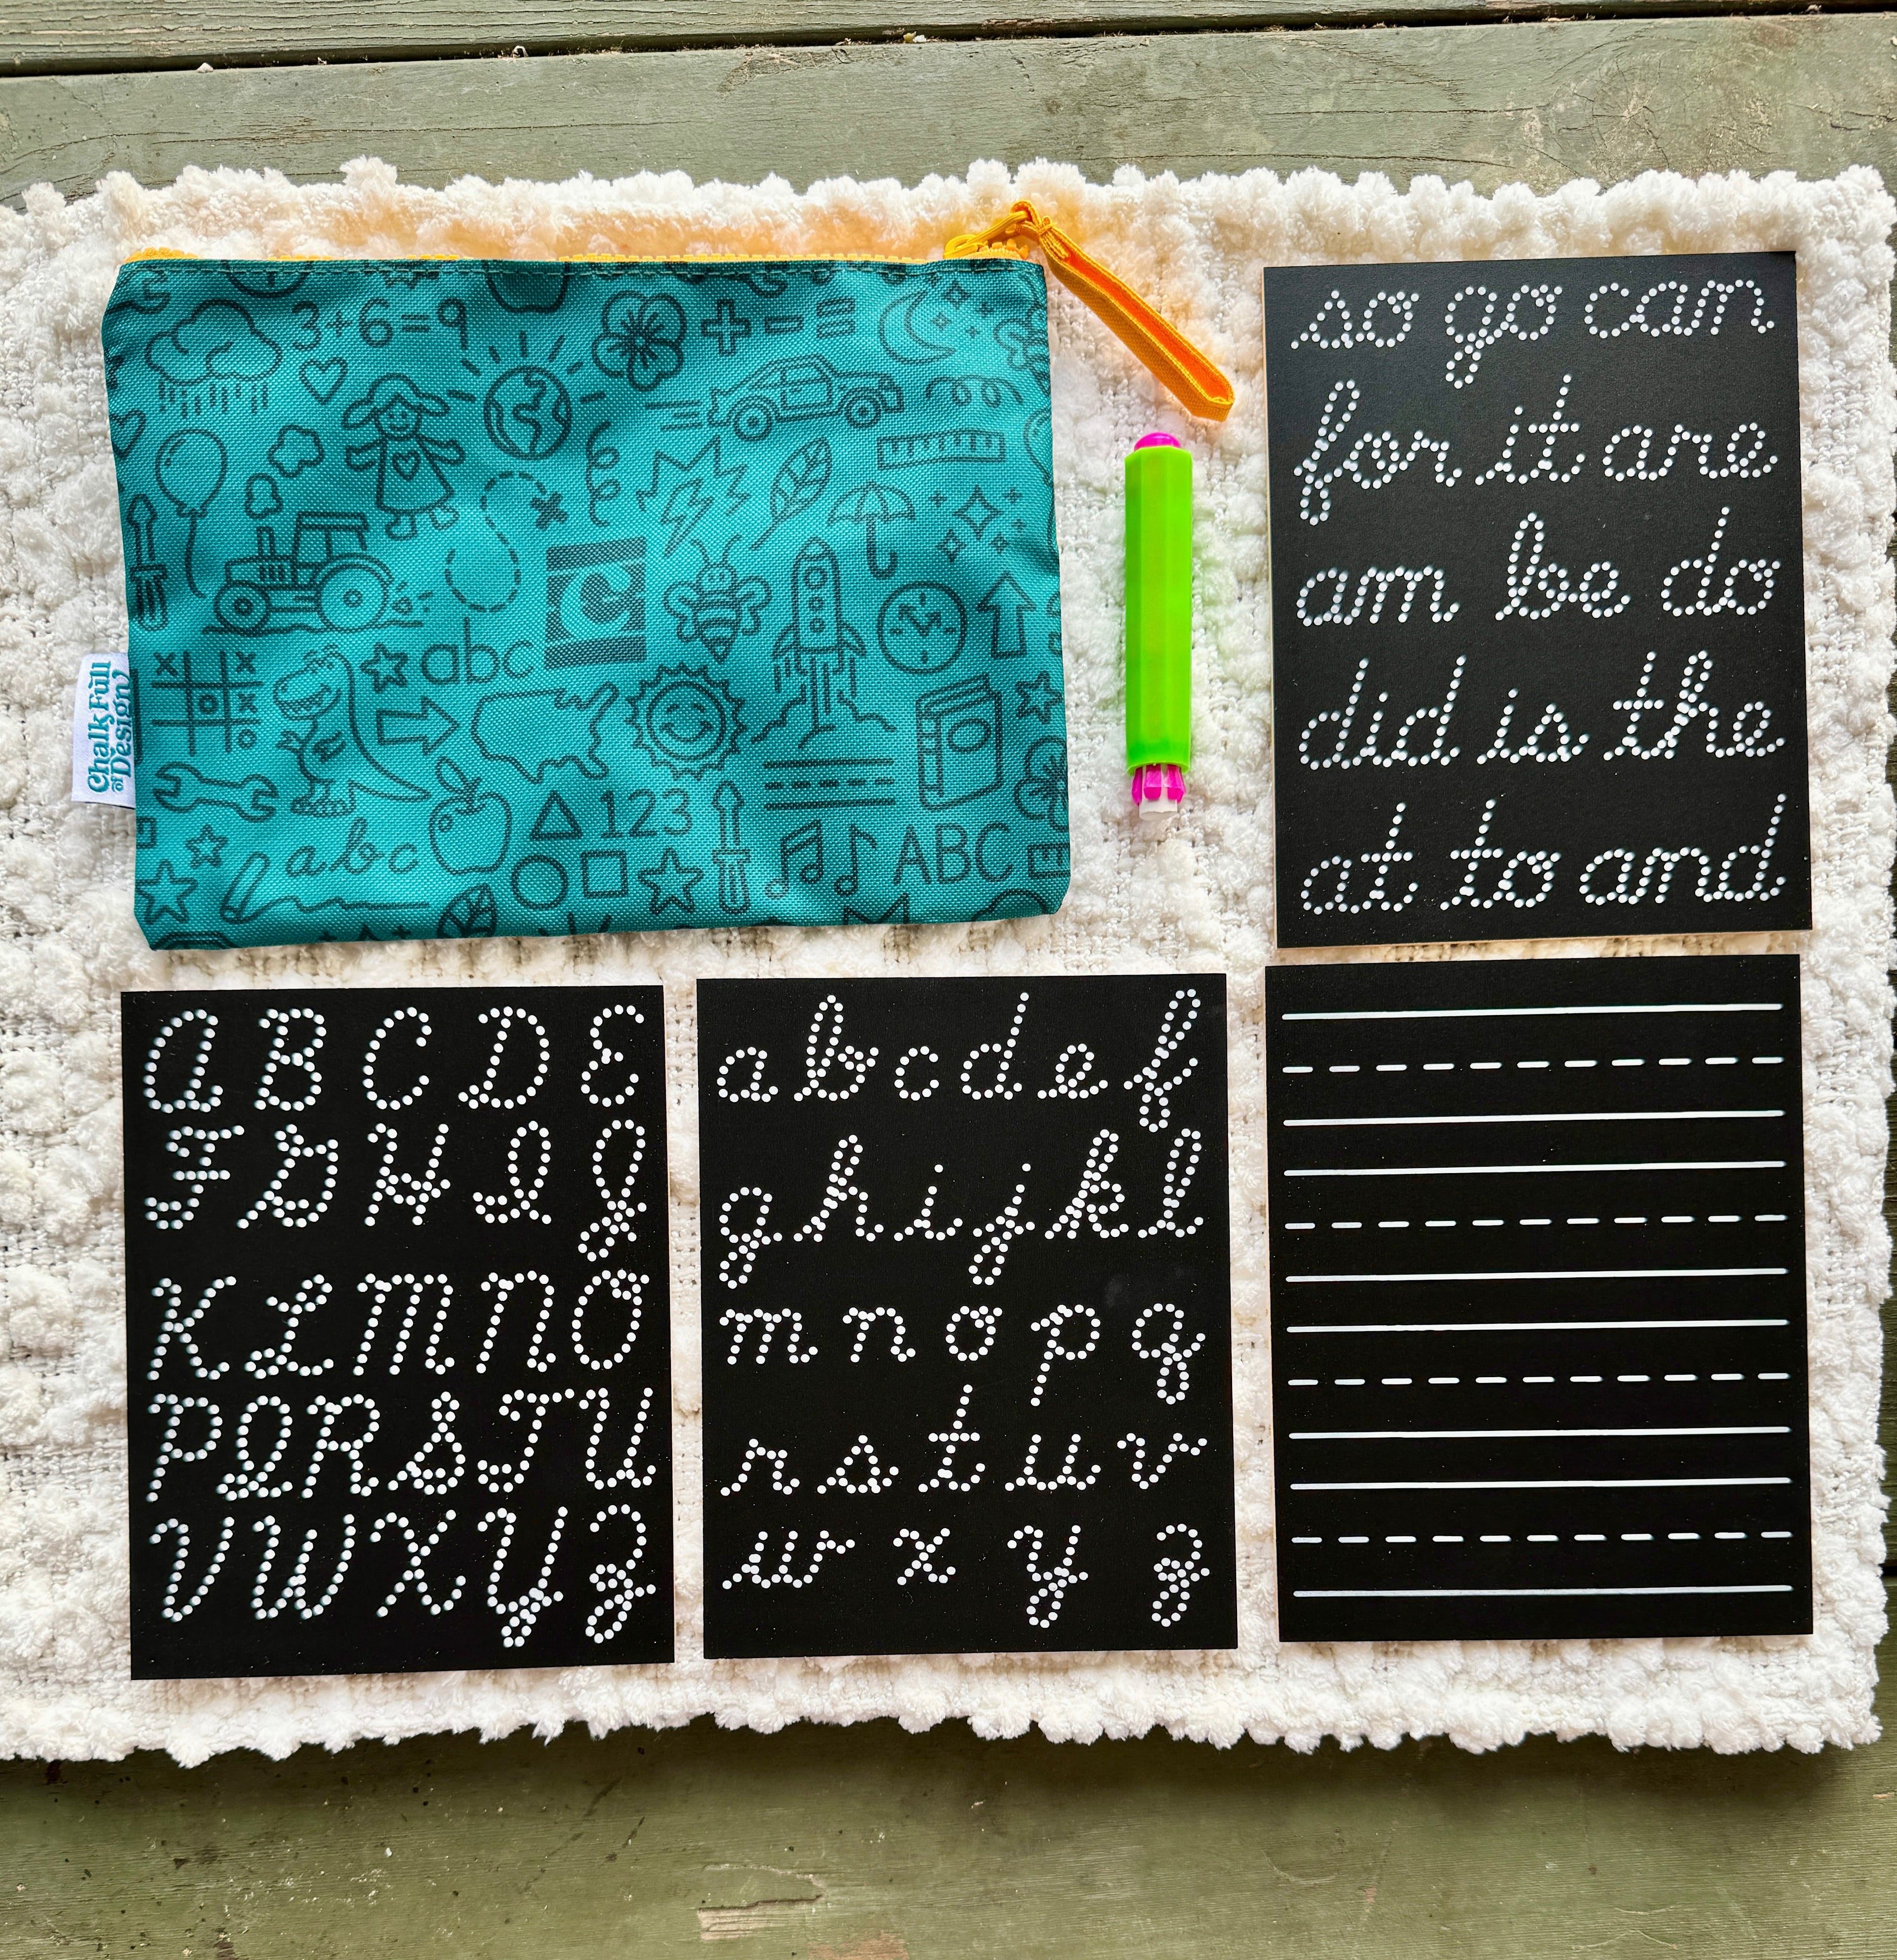 3+6=9
+ - =
abc
C
Chalk Full
of Design
123
abc
ABC
so go can
for it are
am be do
did is the
at to and
A B C D E
F G H I J
K L M N O
P Q R S T U
V W X Y Z
a b c d e f
g h i j k l
m n o p q
r s t u v
w x y z